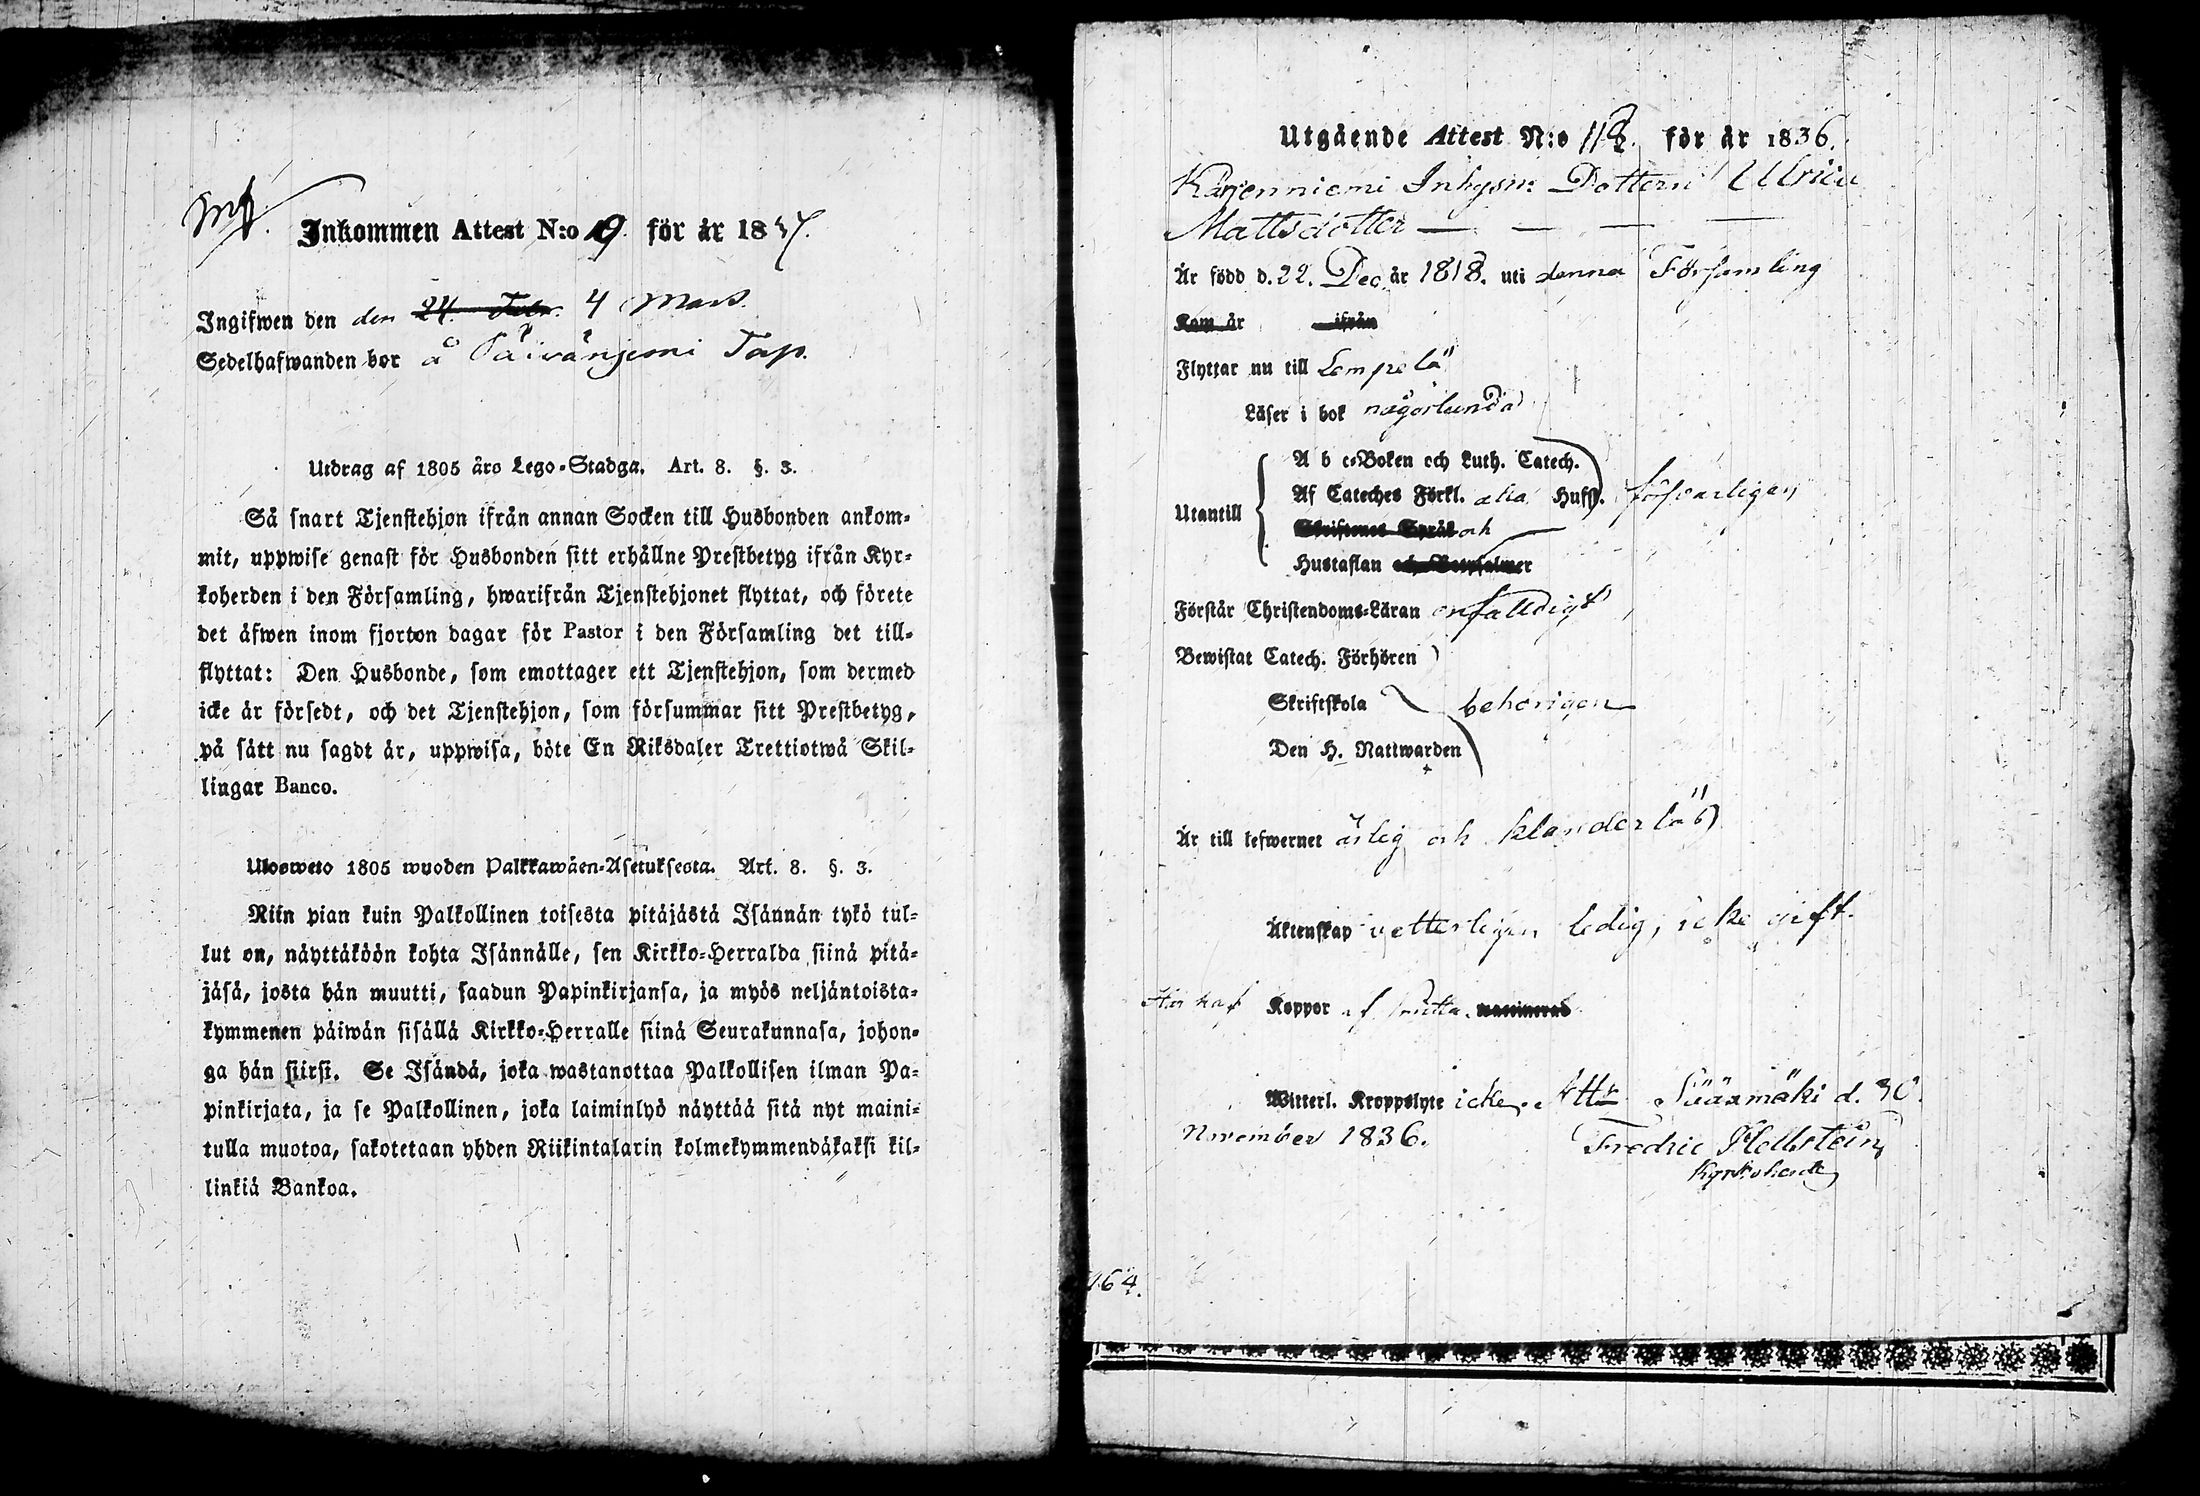 Inkommen Attest N:o 19. för år 1837.
Ingifwen den den 24. Febr. 4 Mars.
Sedelhafwanden bor å Päivänjemi Torp.
Utdrag af 1805 åro Lego-Stadga. Art. 8. §. 3.
Så snart Tjenstehjon ifrån annan Socken till Husbonden ankom-
mit, uppwise genast för Husbonden sitt erhållne Prestbetyg ifrån Kyr-
koherden i den Församling, hwarifrån Tjenstehjonet flyttat, och förete
det äfwen inom fjorton dagar för Pastor i den Församling det till-
flyttat: Den Husbonde, som emottager ett Tjenstehjon, som dermed
icke är försedt, och det Tjenstehjon, som försummar sitt Prestbetyg,
på sätt nu sagdt är, uppwisa, böte En Riksdaler Trettiotwå Skil-
lingar Banco.
Ulosweto 1805 wuoden Palkkawäen-Asetuksesta. Art. 8. §. 3.
Niin pian kuin Palkollinen toisesta pitäjästä Isännän tykö tul-
lut on, näyttäköön kohta Isännälle, sen Kirkko-Herralda siinä pitä-
jäsä, josta hän muutti, saadun Papinkirjansa, ja myös neljäntoista-
kymmenen päiwän sisällä Kirkko-Herralle siinä Seurakunnasa, johon-
ga hän siirsi. Se Isändä, joka wastanottaa Palkollisen ilman Pa-
pinkirjata, ja se Palkollinen, joka laiminlyö näyttää sitä nyt maini-
tulla muotoa, sakotetaan yhden Riikintalarin kolmekymmendäkaksi kil-
linkiä Bankoa.
Utgående Attest N:o 118. för år 1836.
Karjenniemi Inhysm: Dottern Ulrica
Mattsdotter — — — —
Är född d. 22. Dec. år 1818. uti denna Församling
Kom år ifrån
Flyttar nu till Lempelä
Läser i bok någorlunda
A b c-Boken och Luth. Catech.
Af Cateches Förkl. alla Hufst. försvarligen
Utantill
Skriftenes Språk och
Hustaflan och Botpsalmer
Förstår Christendoms-Läran enfaldigt
Bewistat Catech. Förhören
Skriftskola behörigen
Den H. Nattwarden
Är till lefwernet ärlig och klanderlös
Äktenskap vetterligen ledig, icke gift.
Har haft Koppor af vaccinerad
Witterl. Kroppslyte icke. Att:r Sääxmäki d. 30.
November 1836. Fredric Hellsteen
Kyrkoherde
164.